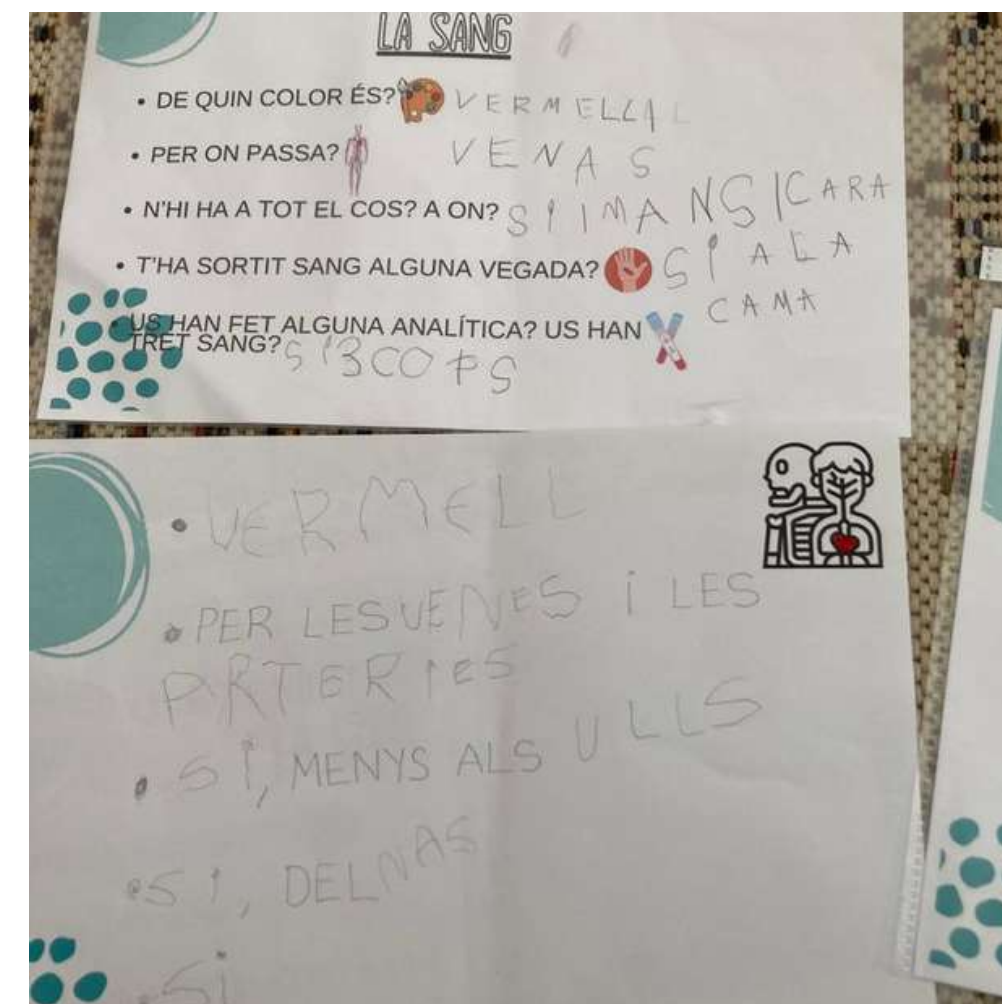 LA SANG
• DE QUIN COLOR ÉS? VERMELLA
• PER ON PASSA? VENAS
• N'HI HA A TOT EL COS? A ON? SI IMANS ICARA
• T'HA SORTIT SANG ALGUNA VEGADA? SI A LA
CAMA
• US HAN FET ALGUNA ANALÍTICA? US HAN
TRET SANG? SI 3 COPS
• VERMELL
• PER LES VENES i LES
ARTERIES
• SI, MENYS ALS ULLS
• SI, DEL NAS
• Si